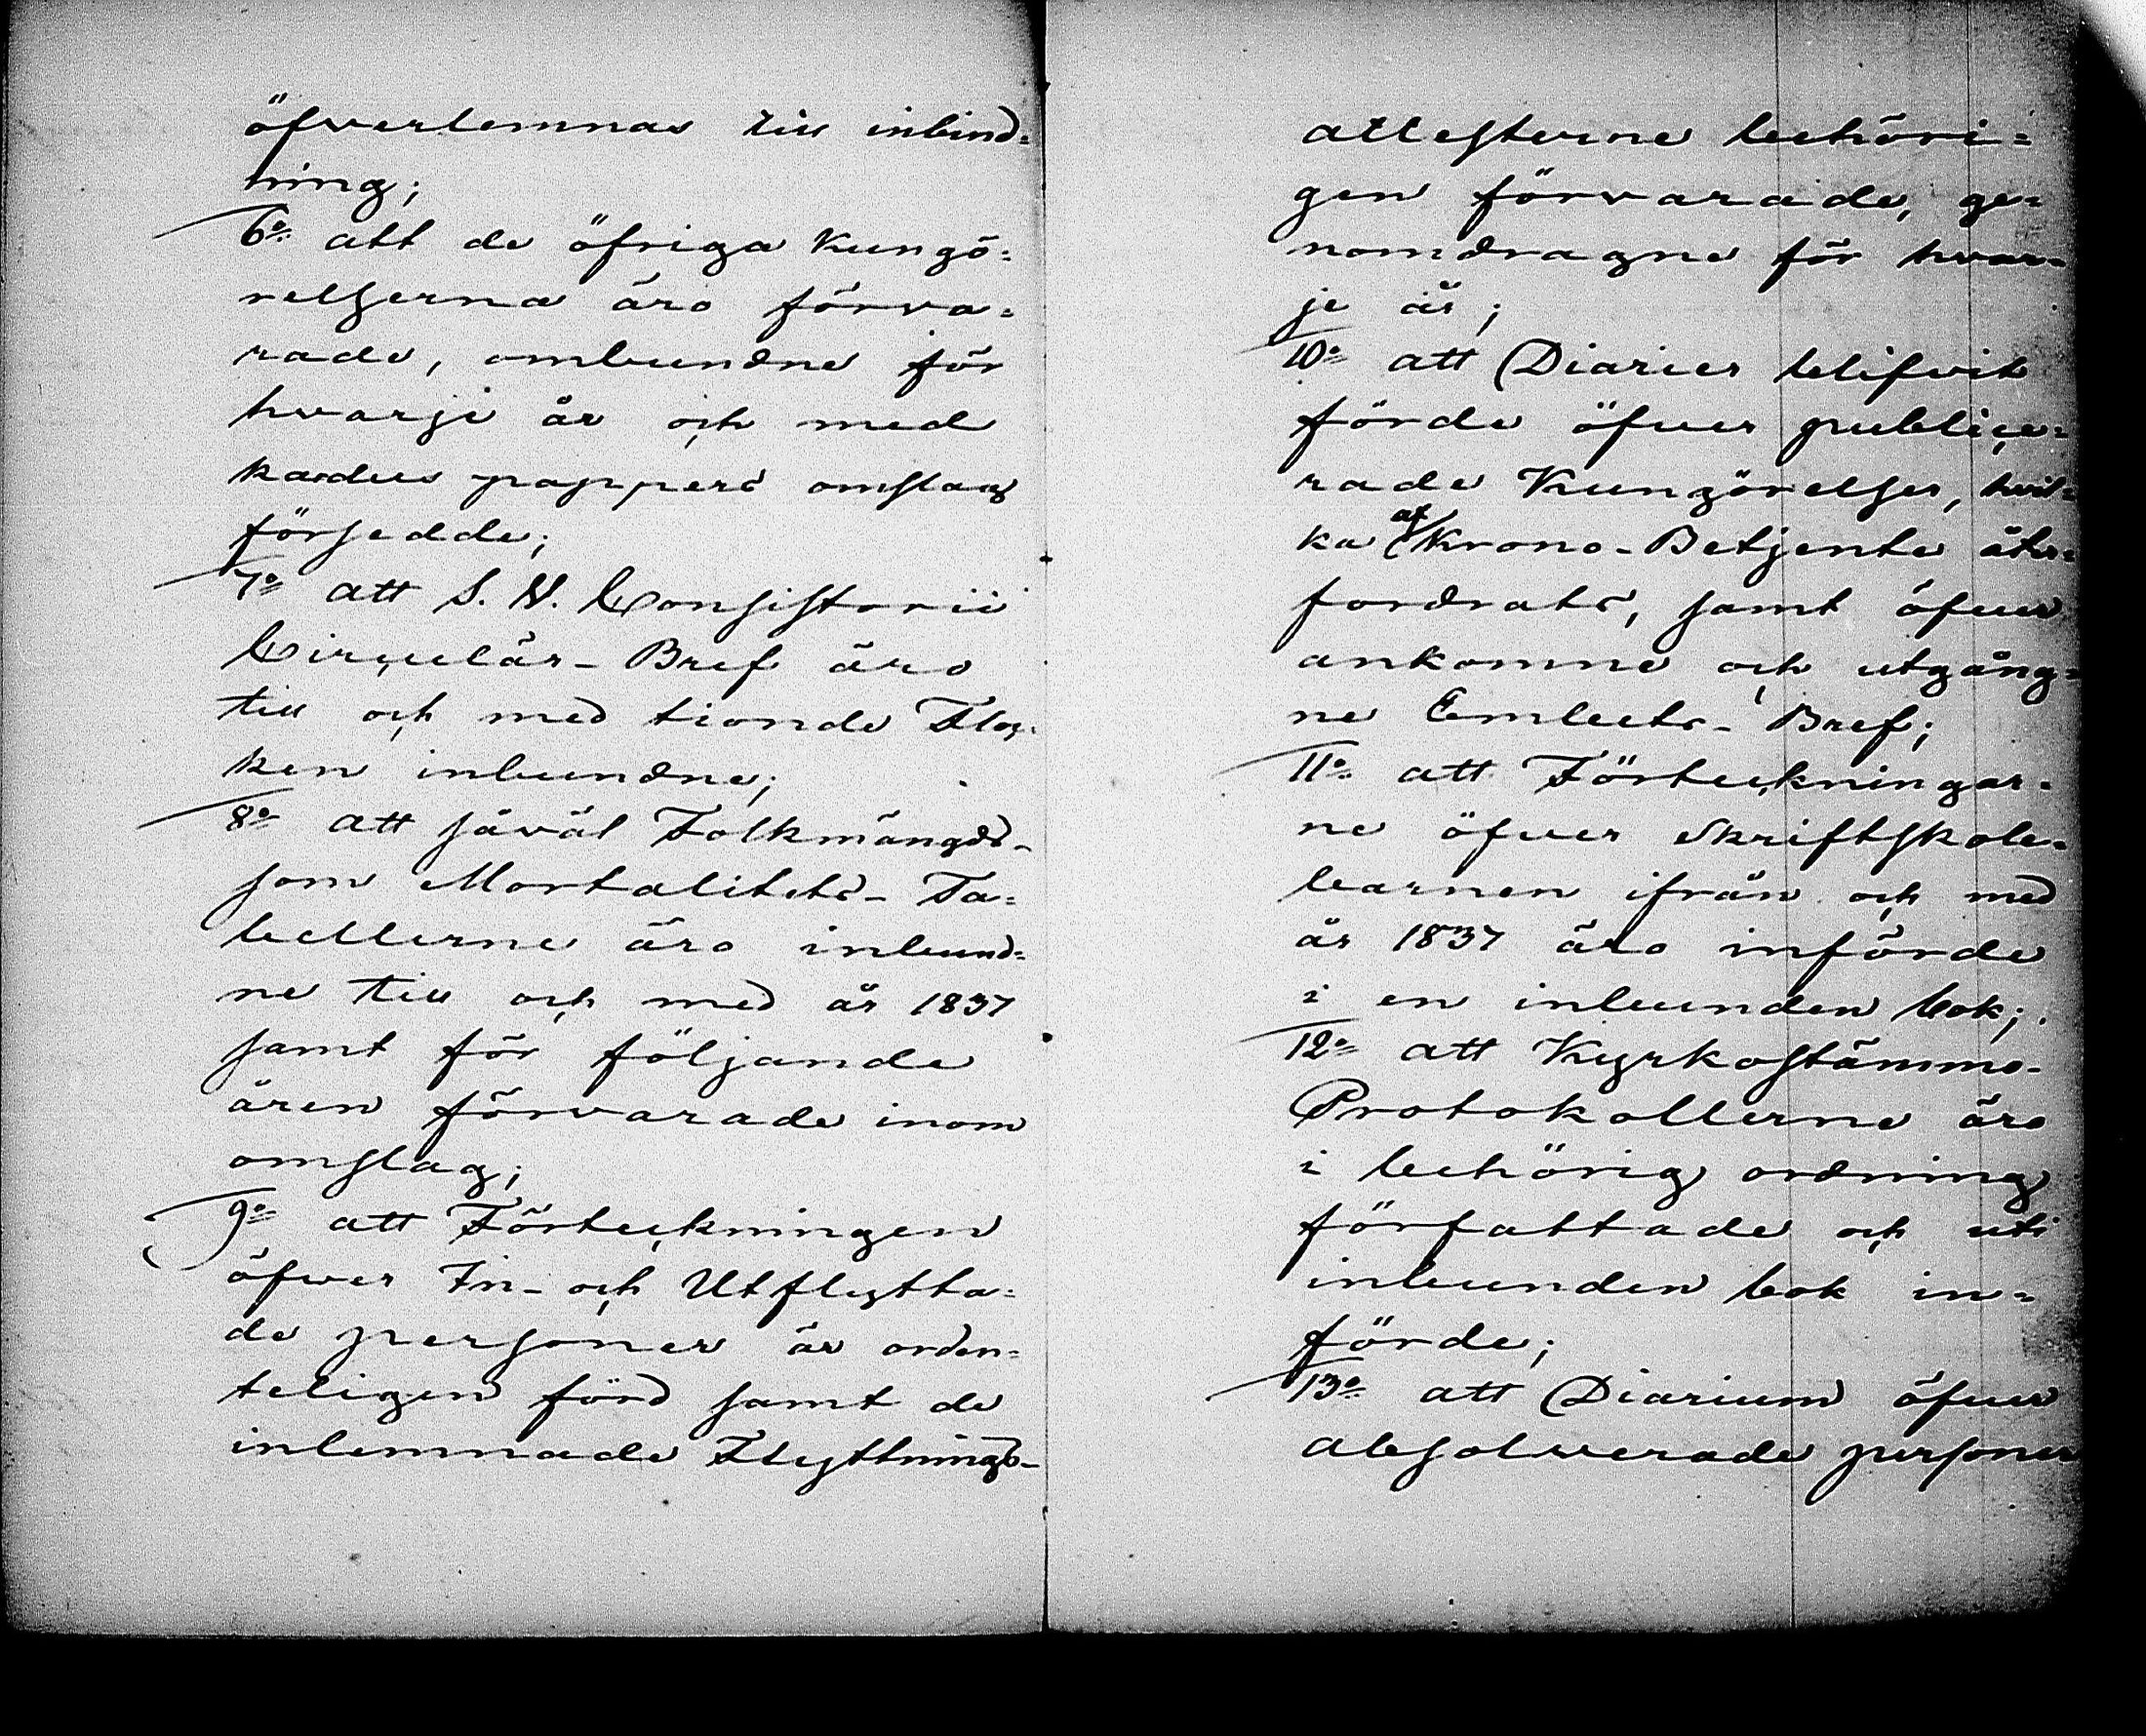 öfverlemnas till inbind=
ning;
6:o att de öfriga Kungö=
relserna äro förva=
rade, ombundne för
hvarje år och med
kardus pappers omslag
försedde;
7:o att S. V. Consistorii
Circulär-Bref äro
till och med tionde Floc=
ken inbundne;
8:o att såväl Folkmängds-
som Mortalitets-Ta=
bellerne äro inbund=
ne till och med år 1837
samt för följande
åren förvarade inom
omslag;
9:o att Förteckningen
öfver In- och Utflytta=
de personer är orden=
teligen förd samt de
inlemnade Flyttnings-
attesterne behöri=
gen förvarade, ge=
nomdragne för hvar=
je år;
10:o att Diarier blifvit
förde öfver publice=
rade Kungörelser, hvil=
ka af Krono-Betjente åter=
fordrats, samt öfver
ankomne och utgång=
ne Embets-Bref;
11:o att Förteckningar=
ne öfver Skriftskole=
barnen ifrån och med
år 1837 äro införde
i en inbunden bok;
12:o att Kyrkostämmo-
Protokollerne äro
i behörig ordning
författade och uti
inbunden bok in=
förde;
13:o att Diarium öfver
absolverade personer